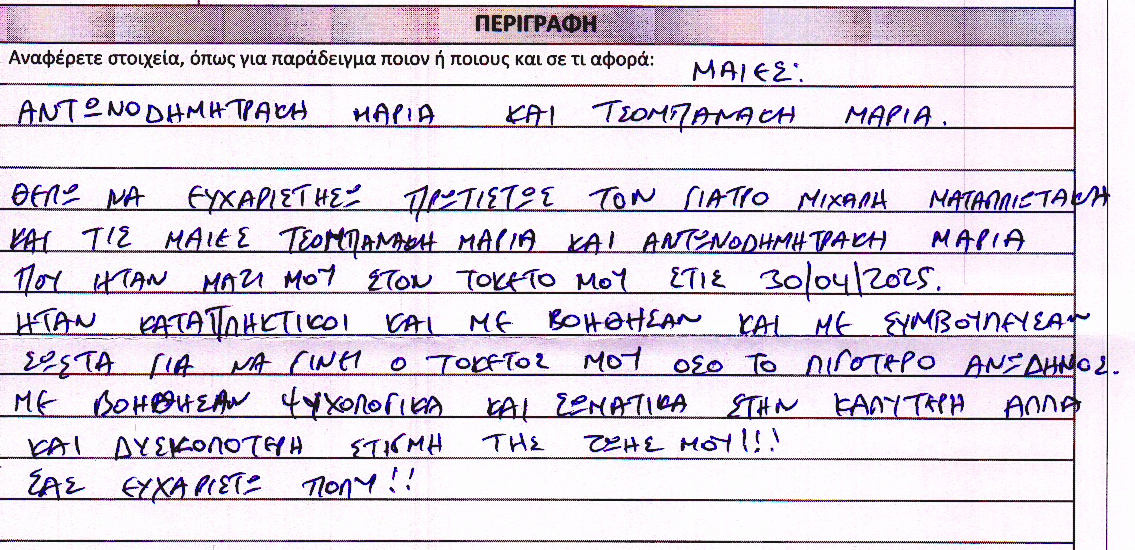 ΠΕΡΙΓΡΑΦΗ
Αναφέρετε στοιχεία, όπως για παράδειγμα ποιον ή ποιους και σε τι αφορά: ΜΑΙΕΣ:
ΑΝΤΩΝΟΔΗΜΗΤΡΑΚΗ ΜΑΡΙΑ ΚΑΙ ΤΣΟΜΠΑΝΑΚΗ ΜΑΡΙΑ.
ΘΕΛΩ ΝΑ ΕΥΧΑΡΙΣΤΗΣΩ ΠΡΩΤΙΣΤΩΣ ΤΟΝ ΓΙΑΤΡΟ ΜΙΧΑΛΗ ΜΑΤΑΛΛΙΩΤΑΚΗ
ΚΑΙ ΤΙΣ ΜΑΙΕΣ ΤΣΟΜΠΑΝΑΚΗ ΜΑΡΙΑ ΚΑΙ ΑΝΤΩΝΟΔΗΜΗΤΡΑΚΗ ΜΑΡΙΑ
ΠΟΥ ΗΤΑΝ ΜΑΖΙ ΜΟΥ ΣΤΟΝ ΤΟΚΕΤΟ ΜΟΥ ΣΤΙΣ 30/04/2025.
ΗΤΑΝ ΚΑΤΑΠΛΗΚΤΙΚΟΙ ΚΑΙ ΜΕ ΒΟΗΘΗΣΑΝ ΚΑΙ ΜΕ ΣΥΜΒΟΥΛΕΥΣΑΝ
ΣΩΣΤΑ ΓΙΑ ΝΑ ΓΙΝΕΙ Ο ΤΟΚΕΤΟΣ ΜΟΥ ΟΣΟ ΤΟ ΛΙΓΟΤΕΡΟ ΑΝΩΔΗΝΟΣ.
ΜΕ ΒΟΗΘΗΣΑΝ ΨΥΧΟΛΟΓΙΚΑ ΚΑΙ ΣΩΜΑΤΙΚΑ ΣΤΗΝ ΚΑΛΥΤΕΡΗ ΑΛΛΑ
ΚΑΙ ΔΥΣΚΟΛΟΤΕΡΗ ΣΤΙΓΜΗ ΤΗΣ ΖΩΗΣ ΜΟΥ!!!
ΣΑΣ ΕΥΧΑΡΙΣΤΩ ΠΟΛΥ!!